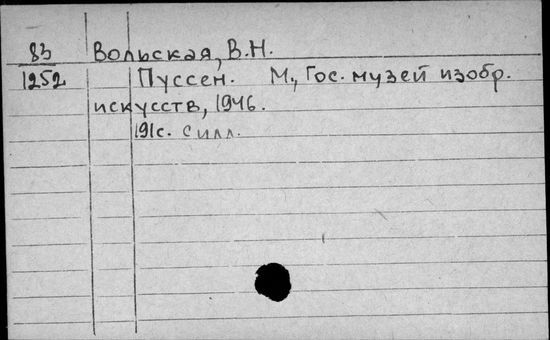 83 Вольская, В.Н.
1252 Пуссен. М., Гос. музей изобр.
искусств, 1946.
191с. с илл.